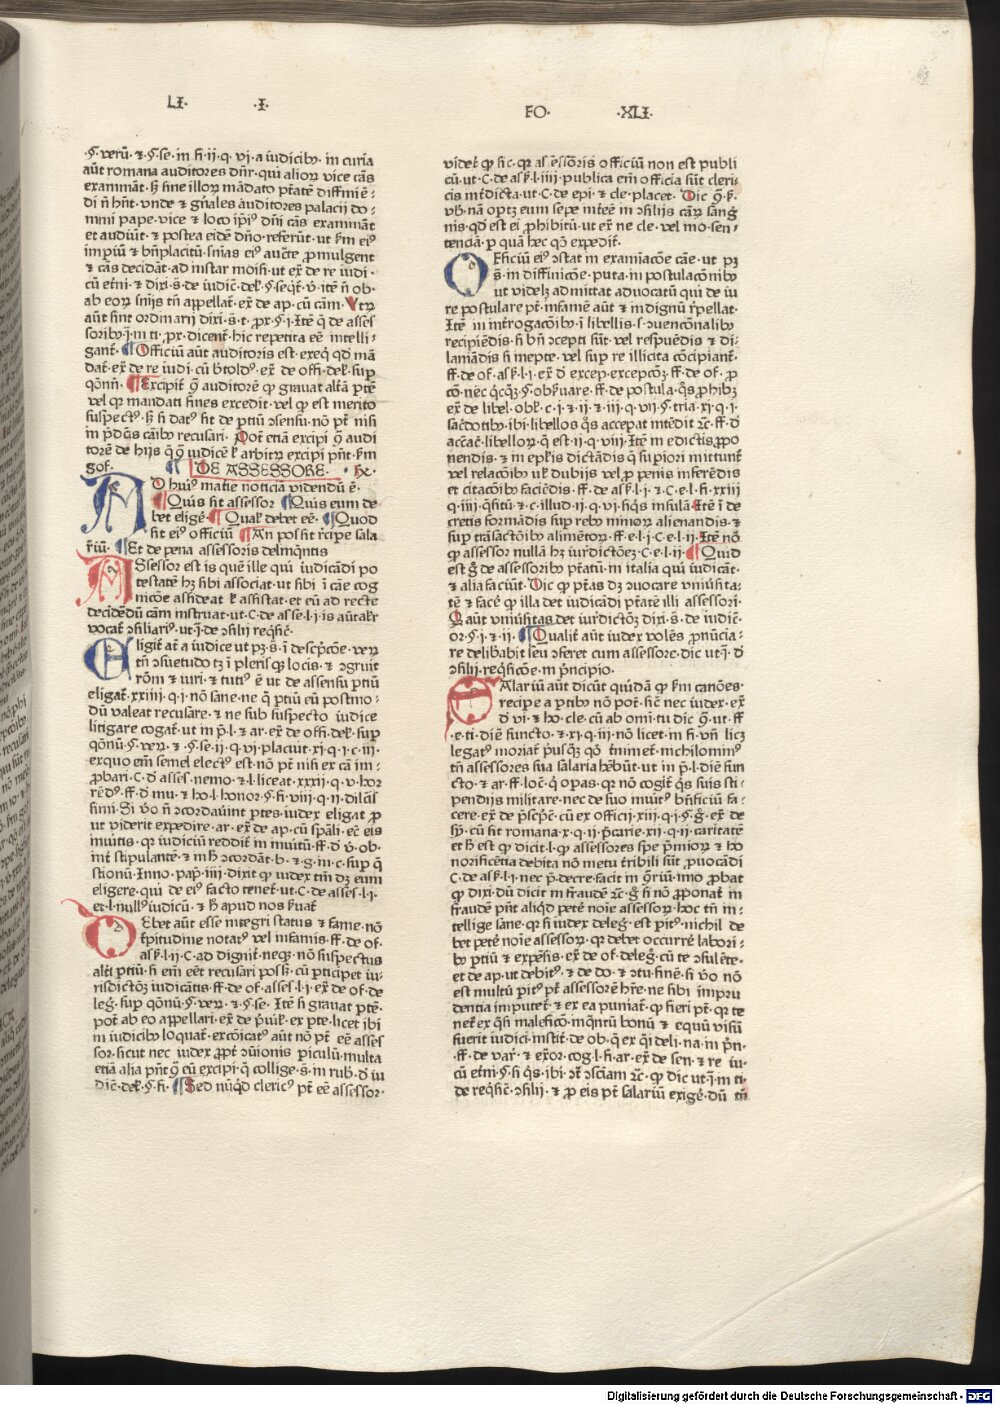 LI· ·I·
FO· ·XLI·
·ꝯ· verū· ⁊·ꝯ·se· in fi·ii·q· vj·a iudicib9· in curia
aūt romana auditores dn̄r·qui alioꝝ vice cās
examināt·ꝫ sine illoꝝ mādato ptāte diffinīē-
di n̄ hn̄t·vnde ⁊ gn̄ales auditores palacij do-
mini pape·vice ⁊ loco ip̄i9 dn̄i cās examināt
et audiūt·⁊ postea eidē dn̄o·referūt·ut
impiū ⁊ bn̄placitū·sn̄ias ei9 auc̄te ꝓmulgent
⁊ cās decidāt·ad instar moisi·ut ex̄·de re iudi·
cū etn̄i·⁊ dixi·s̄·de iudic̄·
ab eoꝝ snījs tn̄ appellat̄·ex̄·de ap·cū cām·Vtꝝ
aūt sint ordinarij dixi·s̄·t·prox·ꝯ·i·Itē q̄ de asses
sorib9·i·in ti·prox·dicent̄·hic repetita eē intelli-
gant̄·Officiū aūt auditoris est·exeq̄ qd mā
dat·ex̄·de re iudi·cū b̄told9·ex̄·de offi·del·sup
qōnīī·Excipit̄ ꝯ auditorē ꝙ grauat alt̄ā ptē
vel qr mandati fines excedit·vel ꝙ est merito
suspect9·ꝫ si dat9 sit de ptiū ꝯsensu·nō pt̄ nisi
in p̄dūs cāib9 recusari·Pot̄ etiā excipi ꝯ audi
torē de hijs q̄ ꝯ iudicē ł arbitꝝ excipi pn̄t·
gof·
DE ASSESSORE·
AD hui9 matīe noticiā videndū ē·
Quis sit assessor Quis eum de
bet eligē·Qual debet eē·Quod
sit ei9 officiū An possit rēcipe sala
r̄iū·Et de pena assessoris delinq̄ntis
ASsessor est is quē ille qui iudicādi po
testatē hꝫ sibi associat·ut sibi i cāe cog
nicōe assideat ł assistat·et eū ad recte
decidēdū cām instruat·ut·C·de asse·l·i·
vocat̄ ꝯsiliari9·ut·i·de ꝯsilij req̄sic̄·
ELigit̄ at̄ a iudice ut pꝫ·s̄·i descpc̄oe·veꝝ
tn̄ ꝯsuetudo tꝫ i plerisqꝫ locis·⁊ ꝯgruit
rōm ⁊ iuri·⁊ tuti9 ē ut de assensu ptiū
eligat̄·xxiiij·q·i·nō sane·ne q̄ ptiū eū postmo-
dū valeat recusare·⁊ ne sub suspecto iudice
litigare cogat̄·ut in p̄·l·⁊ ar·ex̄·de offi·del·sup
qōnū·ꝯ·veꝝ·⁊·ꝯ·se·ii·q·vj·placuit·xj·q·i·c·iij·
exquo em̄ semel elect9 est·nō pt̄ nisi ex cā im-
ꝓbari·C·d̄ asses·nemo·⁊·l·liceat·xxxij·q·v·hor
rēd9·ff·d̄ mu·⁊ ho·l·honor·ꝯ·fi·viij·q·ij·dilc̄is
simi·Si v̄o n̄ ꝯcordauint ptes·iudex eligat ꝓ
ut viderit expedire·ar·ex̄·de ap·cū spāli·eē eis
inuitis·qr iudiciū reddit̄ in inuitū·ff·d̄ v̄·ob·
int̄ stipulante·⁊ ꝯcordāt·b·⁊ g·in c·sup q̄
stionū·Inno·pap·iiij·dixit ꝙ iudex tm̄ dꝫ eum
eligere·qui de ei9 facto tenet̄·ut·C·de asses·l·i·
et·l·null9 iudicū·⁊ ꝫ apud nos
DEbet aūt esse integri status ⁊ fame·nō
t̄pitudine notat9 vel infamis·ff·de of·
ass·l·ii·C·ad dignit̄·neqꝫ·nō suspectus
alt̄i ptiū·si em̄ eēt recusari poss·cū pticipet iu-
risdictōis iudicātis·ff·de of·asses·l·i·ex̄·de of·de
leḡ·sup qōnū·ꝯ·veꝝ·⁊·ꝯ·se·Itē si grauat ptē·
pot̄ ab eo appellari·ex̄·de p̄uil·ex pte·licet ibi
in iudicib9 loquat̄·excōicat9 aūt nō pt̄ eē asses
sor·sicut nec iudex ꝓpt̄ ꝯuīonis piculū·multa
etiā alia pn̄t ꝯ eū excipi·q̄ collige·s̄·in rub·d̄ iu
dic̄·del·ꝯ·fi·Sed nūqd cleric9 pt̄ eē assessor·
videt̄ ꝙ sic·qr assessoris officiū non est publi
cū·ut·C·de ass·l·iiij·publica em̄ officia sūt cleri-
cis int̄dicta·ut·C·de epi·⁊ cle·placet·Dic ꝯ·
vb·nā optꝫ eum sepe int̄eē in ꝯsilijs cāꝝ sang̃
nis·qd est ei ꝓhibitū·ut ex̄·ne cle·vel mo·sen-
tenciā·p quā hec qō expedit̄·
OFficiū ei9 ꝯstat in examīacōe cāe·ut pꝫ
s̄·in diffinicōe·puta·in postulacōnib9
ut videlꝫ admittat aduocatū qui de iu
re postulare pt̄·infamē aūt ⁊ indignū r̄pellat·
Itē in int̄rogacōib9·i libellis·s·ꝯuencōnalib9
recipiēdis·si bn̄ ꝯcepti sūt·vel respuēdis ⁊ di-
laniādis si inepte·vel sup re illicita cōcipiant̄·
ff·de of·ass·l·i·ex̄·d̄ excep·excepcōꝫ·ff·de of·ꝓ
cō·nec q̄cqꝫ·ꝯ·obsuare·ff·de postula·q̄s·ꝓhibꝫ
ex̄·de libel·obl·c·i·⁊ ii·⁊ iij·q·vij·ꝯ·tria·xj·q·i·
sac̄dotib9·ibi·libellos q̄s accepat int̄edit ꝛc·ff·d̄
ac̄cac̄·libelloꝝ·q̄ est·ii·q·viij·Itē in edictis ꝓpo
nendis·⁊ in epl̄is dictādis q̄ supiori mittunt̄
vel relacōib9 ul̄ dubijs vel ꝓ penis inferēdis
et citacōib9 faciēdis·ff·de ass·l·i·⁊·C·e·l·fi·xxiij
q·iiij·q̄sitū·⁊ c·illud·ij·q·vj·siq̄s insulā·Itē i de
cretis formādis sup reb9 minoꝝ alienandis·⁊
sup trāsactōib9 alimētoꝝ·ff·e·l·i·C·e·l·ii·Itē nō
ꝙ assessor nullā hꝫ iur̄dictōeꝫ·C·e·l·ii·Quid
est g̃ de assessorib9 pt̄atū·in italia qui iudicāt·
⁊ alia faciūt·Dic ꝙ pt̄as dꝫ ꝯuocare vniūsita-
tē ⁊ facē ꝙ illa det iudicādi pt̄atē illi assessori·
Qaūt vniūsitas det iur̄dictōꝫ dixi·s̄·de iudic̄·
or·ꝯ·i·⁊·ii·Qualit̄ aūt iudex volēs ꝓnūcia-
re delibabit seu ꝯferet cum assessore·dic ut·i·d̄
ꝯsilij·req̄sic̄oe·in p̄ncipio·
SAlariū aūt dicūt quidā ꝙ canōes·
recipe a ptib9 nō pot̄·sic̄ nec iudex·ex̄
d̄ vi·⁊ ho·cle·cū ab omi·tu dic ꝯ·ut·ff
·e·ti·diē functo·⁊·xj·q·iij·nō licet·in fi·vn̄ licꝫ
legat9 moriat̄ p̄usqꝫ·nichilomin9
tn̄ assessores sua salaria hēbūt·ut in p̄·l·diē fun
cto·⁊ ar·ff·loc̄·q̄ opas·qr nō cogit̄ q̄s suis sti-
pendijs militare·nec de suo muūt9 bn̄ficiū fa-
cere·ex̄·de p̄scp̄·cū ex officij·xiij·q·i·ꝯ·g̃·ex̄·de
sy̅·cū sit romana·x·q·ii·p̄carie·xij·q·ij·caritatē
et ꝫ est ꝙ dicit·l·ꝙ assessores spe p̄mioꝝ ⁊ ho
norificētia debita nō metu tribili sūt ꝓuocādi
C·de ass·l·i·nec p̄·decre·facit in ꝯriū·imo ꝓbat
ꝙ dixi·dū dicit in fraudē ꝛc·g̃ si nō ꝓponat̄ in
fraudē pn̄t aliqd petē noīe assessoꝝ·hoc tn̄ in-
tellige sane·qr si iudex deleg̃·est pit9·nichil de
bet petē noīe assessoꝝ·qr debet occurrē labori-
b9 ptiū ⁊ expēsis·ex̄·de of·deleg̃·cū te ꝯsulēte·
et de ap·ut debit9·⁊ de do·⁊ ꝯtu·finē·si v̄o nō
est multū pit9 pt̄ assessorē hr̄e·ne sibi impru
dentia imputet̄·⁊ ex ea puniat̄·ꝙ fieri pt̄·qr te
net̄ ex q̄si maleficō·inq̄ntū bonū ⁊ equū visū
fuerit iudici·instit̄·de ob·q̄ ex q̄i deli·na·in p̄n·
·ff·de var̄·⁊ ex̄or·cog·l·fi·ar·ex̄·de sen·⁊ re iu-
cū etn̄i·ꝯ·si q̄s·ibi·ꝯt̄ ꝯsciam ꝛc·ꝙ dic ut·i·in ti·
de req̄sic̄·ꝯsilij·⁊ ꝓ eis pt̄ salariū exigē·dū tn̄
Digitalisierung gefördert durch die Deutsche Forschungsgemeinschaft - DFG